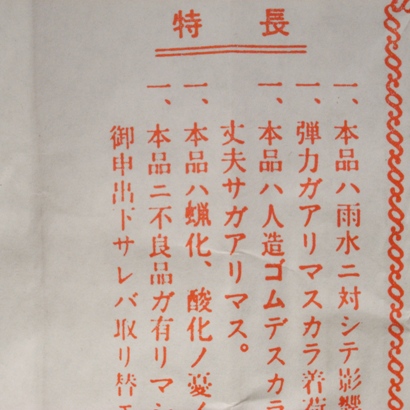 特長
一、本品ハ雨水ニ対シテ影響
一、弾力ガアリマスカラ着荷
一、本品ハ人造ゴムデスカラ
丈夫サガアリマス。
一、本品ハ蝋化、酸化ノ憂
一、本品ニ不良品ガ有リマシ
御申出下サレバ取リ替エ